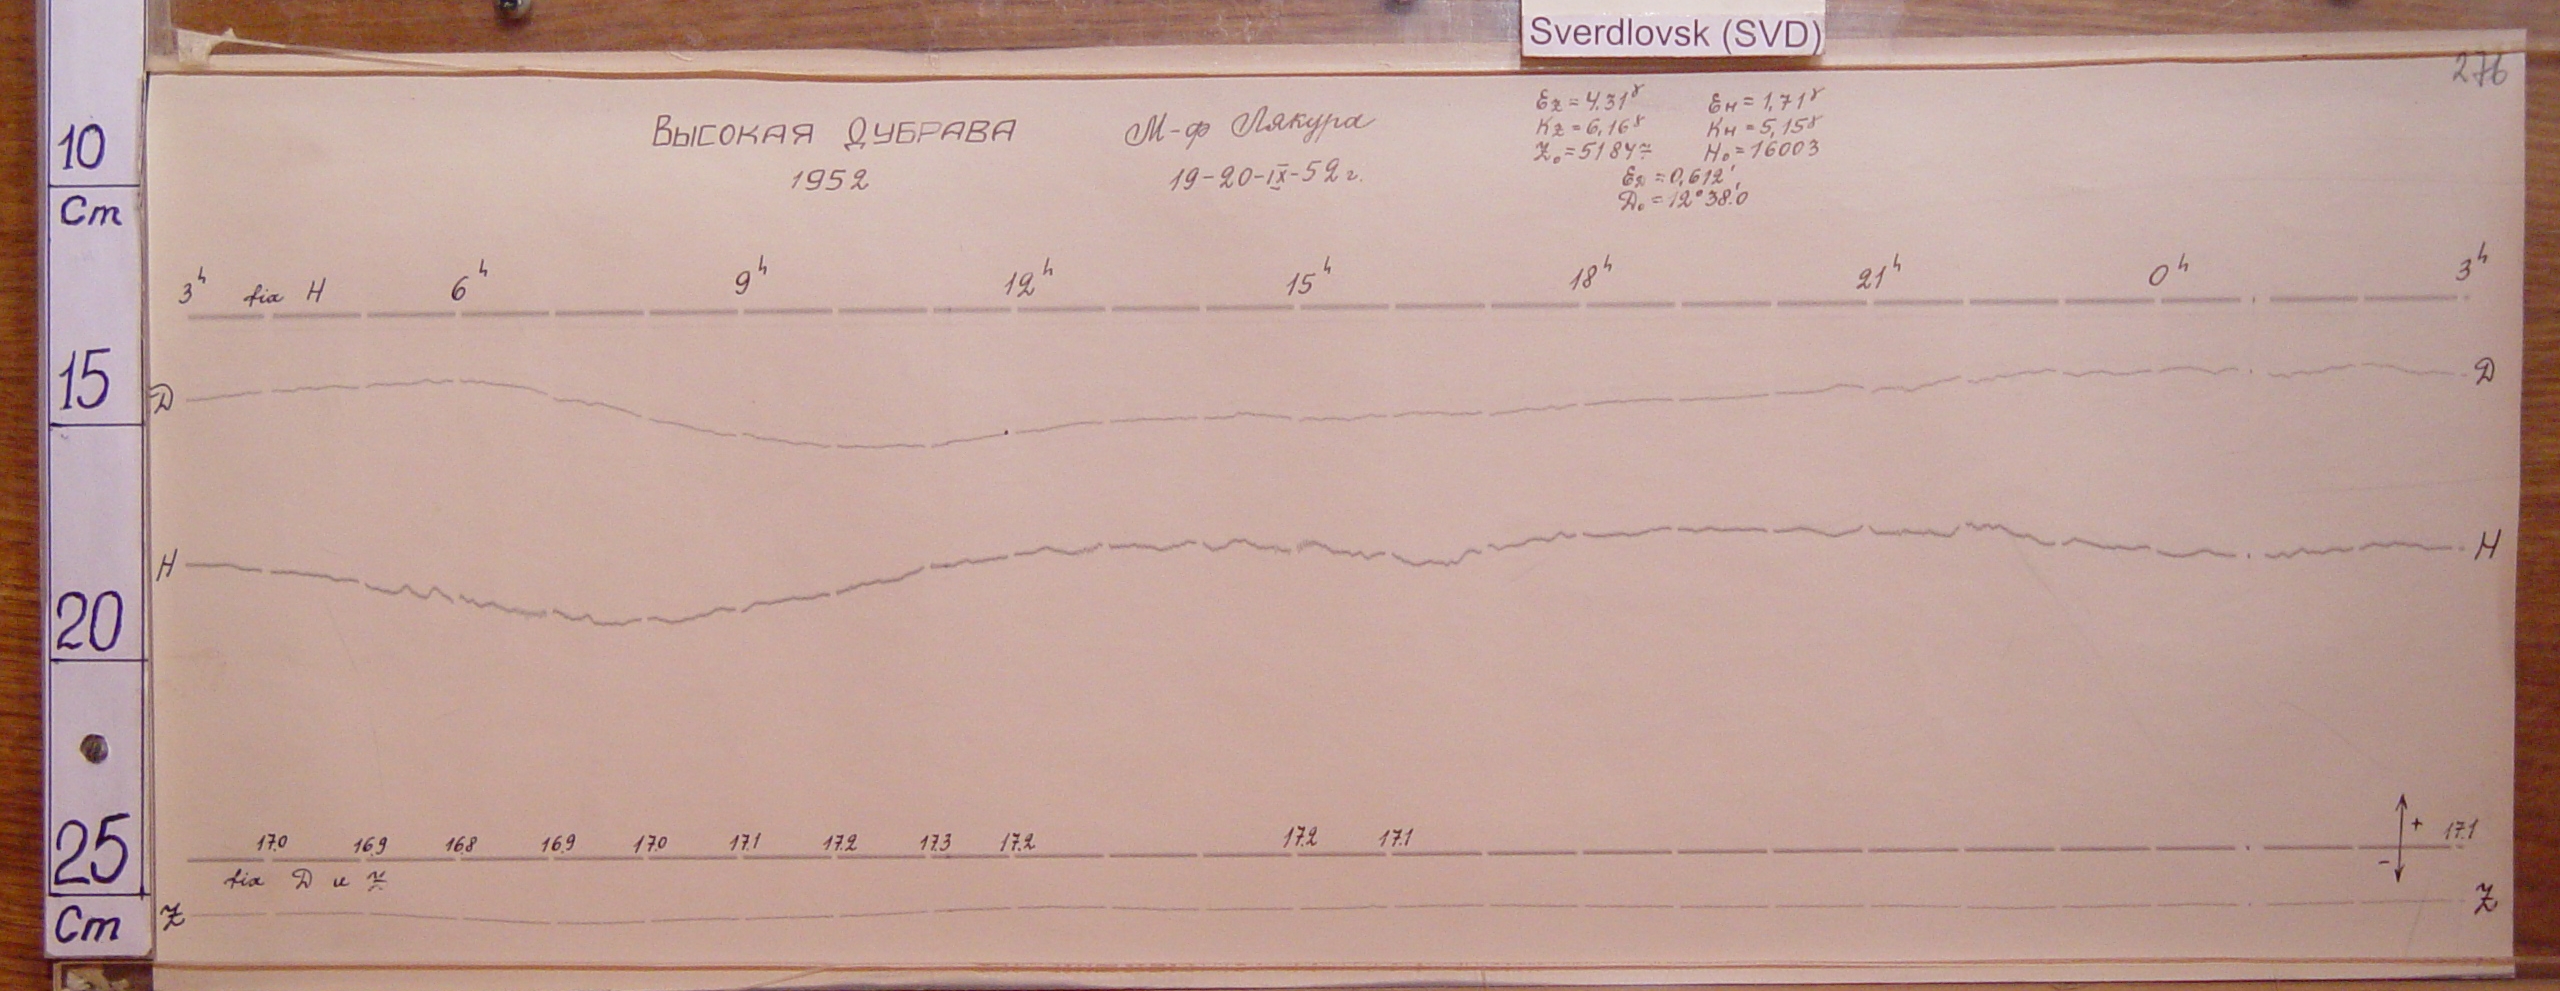 Sverdlovsk (SVD)
276
ВЫСОКАЯ ДУБРАВА
1952
М-ф Лякура
19-20-IX-52 г.
Ez = 4,31γ Eн = 1,71γ
Kz = 6,16γ Kн = 5,15γ
Z₀ = 51847 H₀ = 16003
E𝒟 = 0,612'
D₀ = 12°38.0'
3h fix H 6h 9h 12h 15h 18h 21h 0h 3h
D D
H H
17.0 16.9 16.8 16.9 17.0 17.1 17.2 17.3 17.2 17.2 17.1 17.1
+
-
fix D и Z
Z Z
10
Cm
15
20
25
Cm